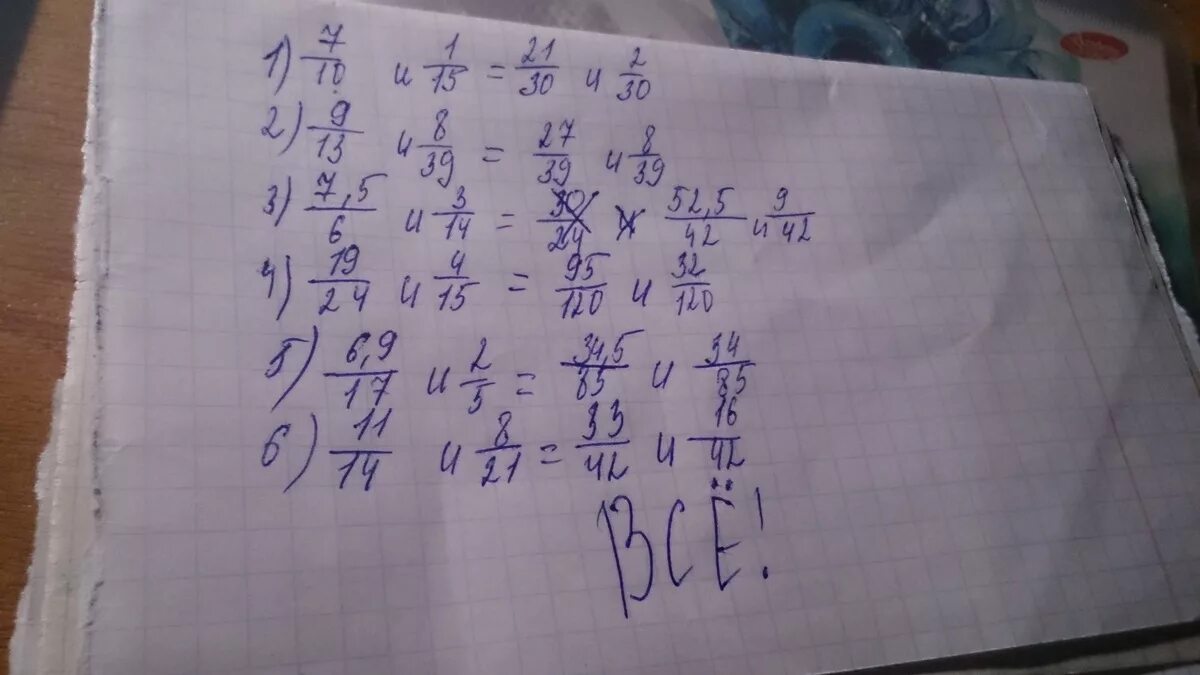 1) 7/10 и 1/15 = 21/30 и 2/30
2) 9/13 и 8/39 = 27/39 и 8/39
3) 7,5/6 и 3/14 = 52,5/42 и 9/42
4) 19/24 и 4/15 = 95/120 и 32/120
5) 6,9/17 и 2/5 = 34,5/85 и 34/85
6) 11/14 и 8/21 = 33/42 и 16/42
ВСЁ!